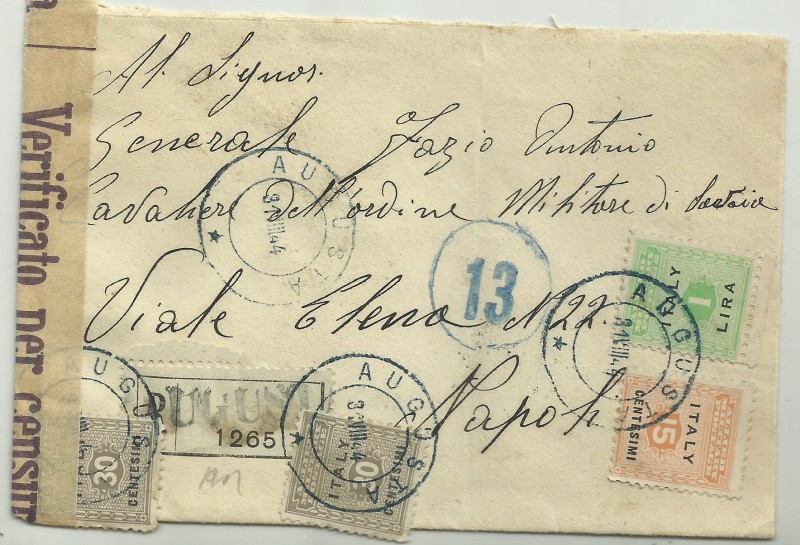 Al Signor
Generale Fazio Antonio
Cavaliere dell'ordine Militare di Savoia
Viale Elena N 22
Napoli
Verificato per censura
AUGUSTA
13
AUGUSTA
1 LIRA
ITALY
15 CENTESIMI
ITALY
AUGUSTA
1265
AUGUSTA
ITALY
CENTESIMI
30 CENTESIMI